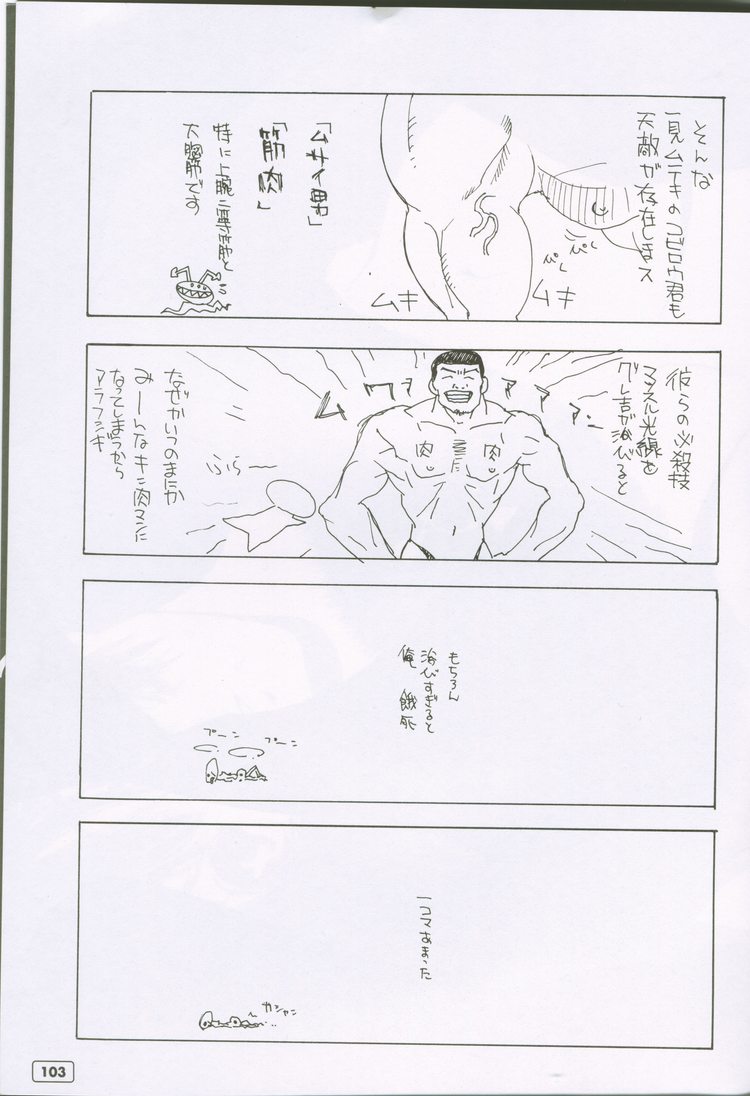 そんな
一見ムテキのコビロウ君も
天敵が存在しまス
ぴく
ぴく
ムキ
ムキ
「ムサイ男」
「筋肉」
特に上腕二等筋と
大胸筋です
彼らの必殺技
マッスル光線を
グレ吉が浴びると
ムワァァァァン
肉
肉
ふらー
なぜかいつのまにか
みーんなキン肉マンに
なってしまうから
アラフシギ
もちろん
浴びすぎると
俺 餓死
プーン
プーン
一コマあまった
カシャン
103